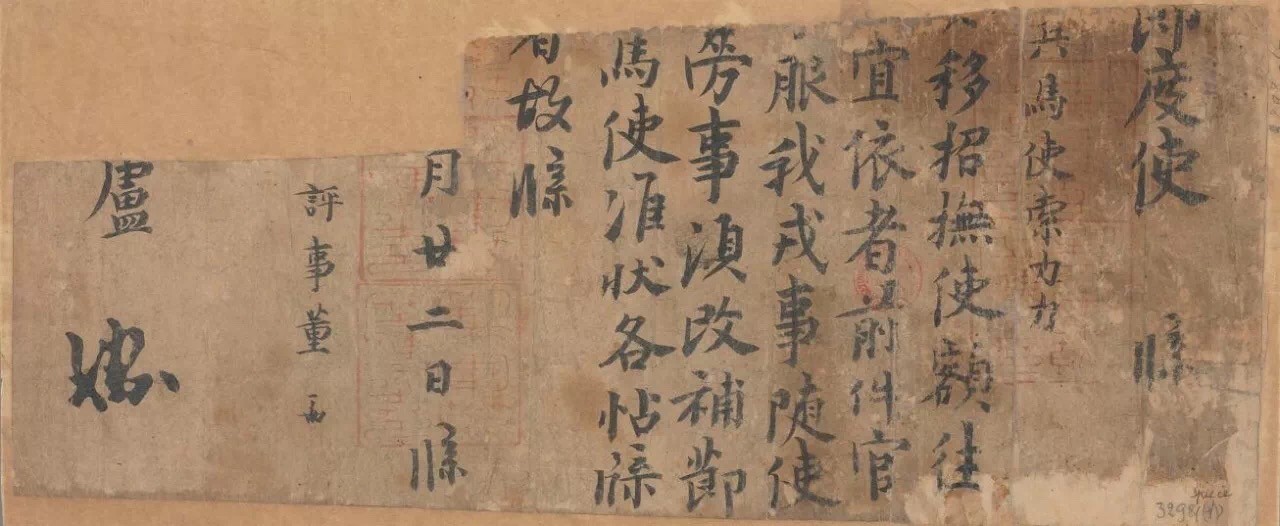 節度使 牒
兵馬使索力力
移招撫使額往
宜依者前件官
服我戎事随使
勞事湏改補節
馬使准狀各帖牒
者故牒
月廿二日牒
評事董
盧
3298